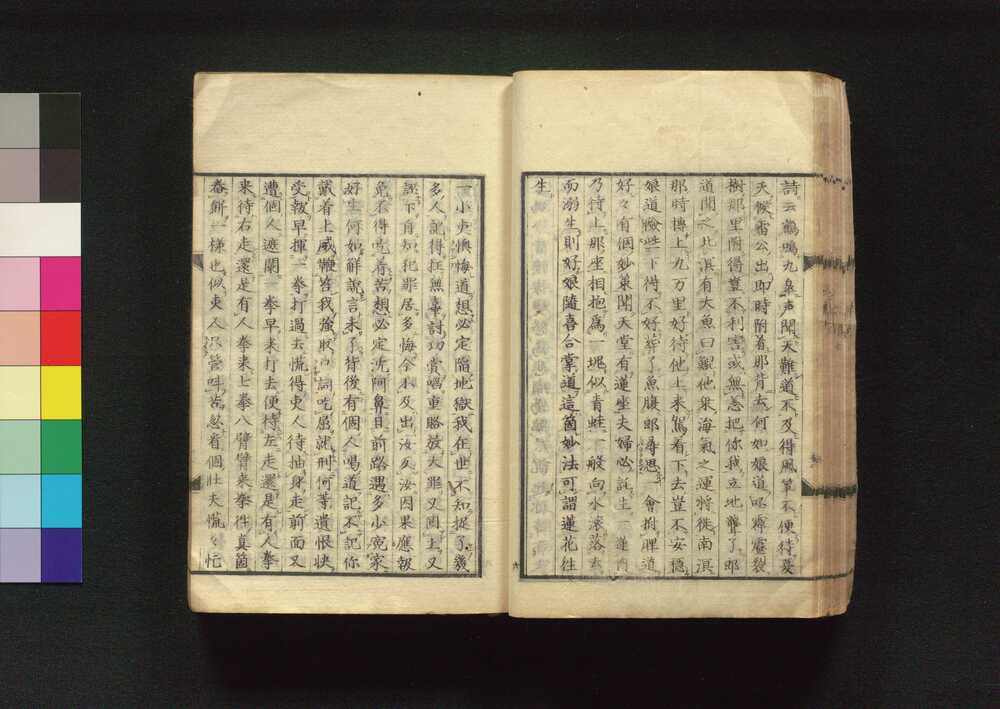 詩云鶴鳴九皐声聞天難道不及得風箏不便待憂
天候雷公出即時附着那背去何如娘道呸霹靂裂
樹那里附得豈不利害或無恙把你我立地擊了郎
道聞之北溟有大魚曰鯤他乗海氣之運将徙南溟
那時摶上九万里好待他上来駕着下去豈不安穏
娘道臉些下得不好葬了魚腹郎尋思會樹脾道
好々有個妙策聞天堂有蓮坐夫婦必託生一蓮内
乃待上那坐相抱為一塊似青蛙一般向水滚落去
而溺生則好娘隨喜合掌道這箇妙法可謂蓮花往
生
一小吏懊悔道想必定陥地獄我在世不知捉了幾
多人記得抂無辜討功賞啗重賂放大罪又因上又
誑下自知犯罪居多悔今不及出汝反汝因果應報
免不得吃着苦想必定沈阿鼻目前路遇多小寃家
好生何如解説言未了背後有個人喝道記不記你
戴着上威鞭笞我強取口詞吃屈就刑何等遺恨快
受報早揮一拳打過去慌得吏人待抽身走前面又
遭個人遮闌一拳早来打去便待左走還是有人拳
来待右走還是有人拳来七拳八臂臂来拳徃真箇
春餅一様也似吏人只管呌苦忽看個壮夫慌々忙